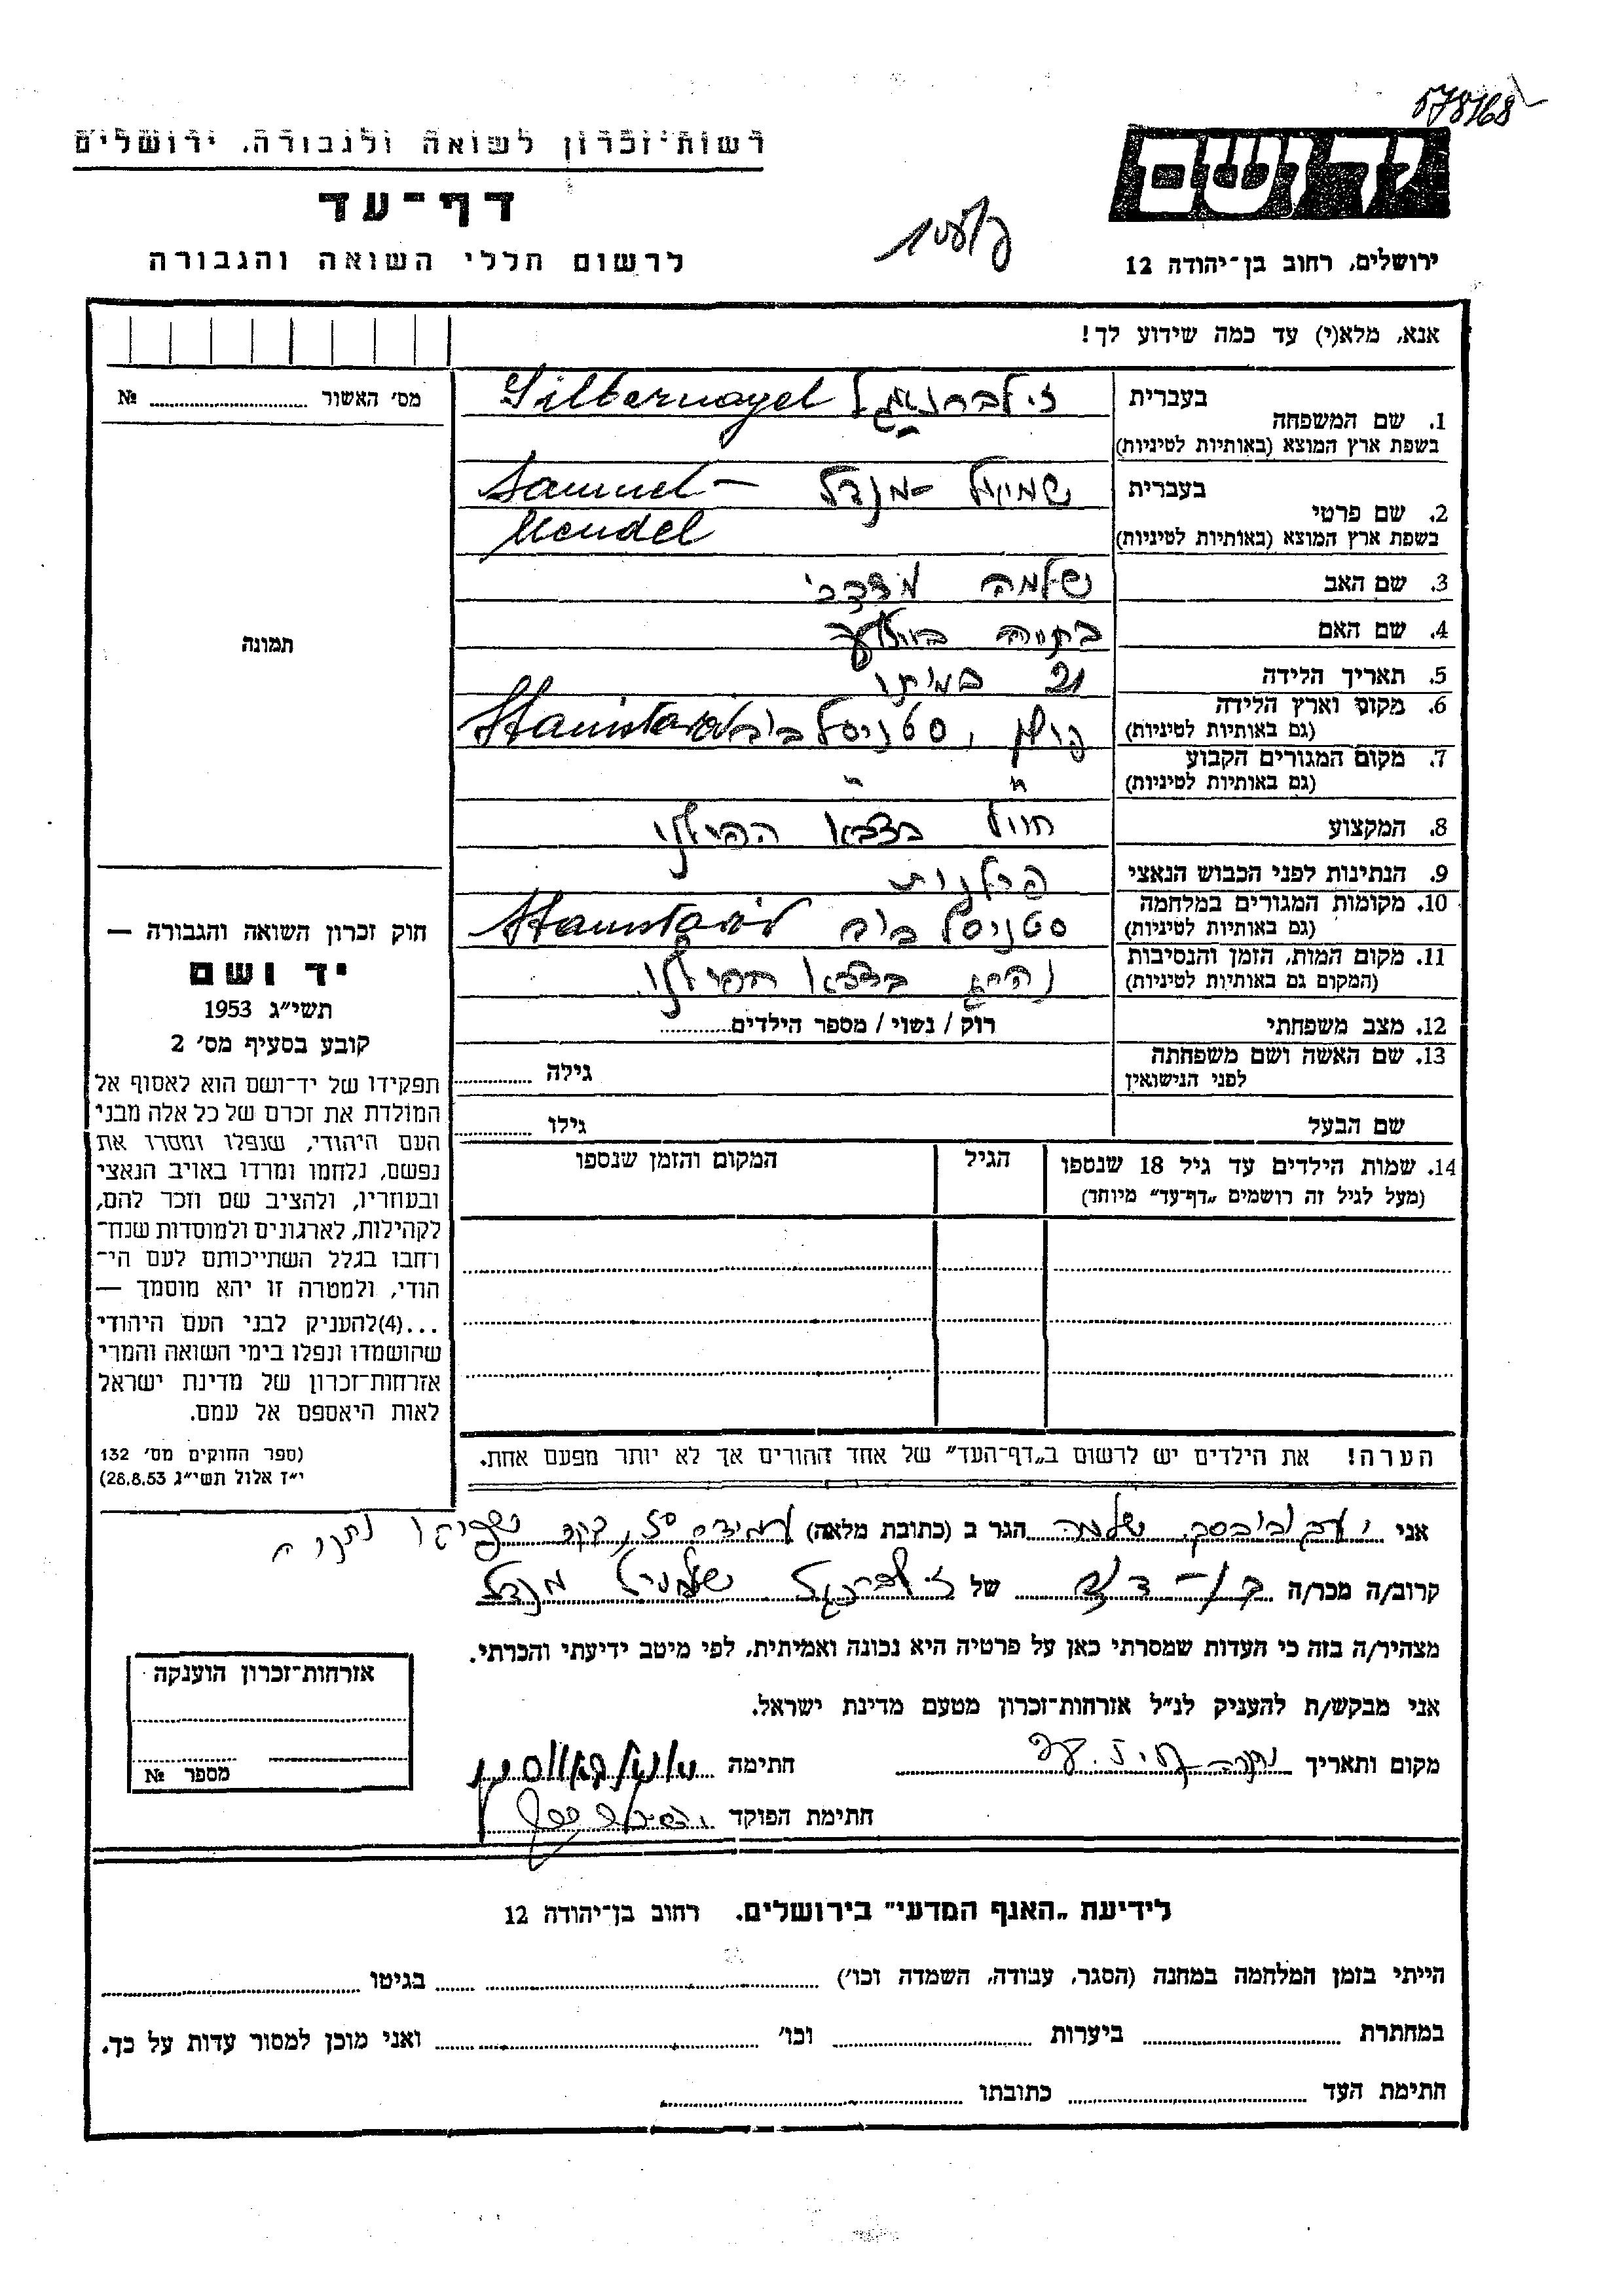 578168
רשות־זכרון לשואה ולגבורה, ירושלים
ידושם
דף־עד
לרשום חללי השואה והגבורה
ירושלים, רחוב בן־יהודה 12
אנא, מלא(י) עד כמה שידוע לך!
מס׳ האשור № 
בעברית
1. שם המשפחה
בשפת ארץ המוצא (באותיות לטיניות)
Silbernagel
בעברית
2. שם פרטי
בשפת ארץ המוצא (באותיות לטיניות)
שמואל - מנדל Samuel -
Mendel
3. שם האב שלמה מרדכי
4. שם האם
5. תאריך הלידה 21 במותו
6. מקום וארץ הלידה
(גם באותיות לטיניות)
פולין, סטניסלבוב
7. מקום המגורים הקבוע
(גם באותיות לטיניות)
" "
8. המקצוע חייל בצבא הפולני
9. הנתינות לפני הכבוש הנאצי פולנית
10. מקומות המגורים במלחמה
(גם באותיות לטיניות)
סטניסלבוב
11. מקום המות, הזמן והנסיבות
(המקום גם באותיות לטיניות)
נהרג בצבא הפולני.
12. מצב משפחתי רוק / נשוי / מספר הילדים
13. שם האשה ושם משפחתה
לפני הנישואין
גילה
שם הבעל גילו
14. שמות הילדים עד גיל 18 שנספו
(מעל לגיל זה רושמים „דף־עד" מיוחד)
הגיל
המקום והזמן שנספו
הערה! את הילדים יש לרשום ב„דף־העד" של אחד ההורים אך לא יותר מפעם אחת.
תמונה
חוק זכרון השואה והגבורה —
יד ושם
תשי״ג 1953
קובע בסעיף מס׳ 2
תפקידו של יד־ושם הוא לאסוף אל
המולדת את זכרם של כל אלה מבני
העם היהודי, שנפלו ומסרו את
נפשם, נלחמו ומרדו באויב הנאצי
ובעוזריו, ולהציב שם וזכר להם,
לקהילות, לארגונים ולמוסדות שנח־
רחבו בגלל השתייכותם לעם הי־
הודי, ולמטרה זו יהא מוסמך —
...(4)להעניק לבני העם היהודי
שהושמדו ונפלו בימי השואה והמרי
אזרחות־זכרון של מדינת ישראל
לאות היאספם אל עמם.
(ספר החוקים מס׳ 132
י״ז אלול תשי״ג 28.8.53)
אני שלמה הגר ב (כתובת מלאה)
קרוב/ה מכר/ה בן-דוד של זילברנגל שמואל מנדל
מצהיר/ה בזה כי העדות שמסרתי כאן על פרטיה היא נכונה ואמיתית, לפי מיטב ידיעתי והכרתי.
אני מבקש/ת להעניק לנ״ל אזרחות־זכרון מטעם מדינת ישראל.
מקום ותאריך חתימה
חתימת הפוקד
אזרחות־זכרון הוענקה
מספר №
לידיעת „האגף המדעי" בירושלים. רחוב בן־יהודה 12
הייתי בזמן המלחמה במחנה (הסגר, עבודה, השמדה וכו׳) בגיטו
במחתרת ביערות וכו׳ ואני מוכן למסור עדות על כך.
חתימת העד כתובתו